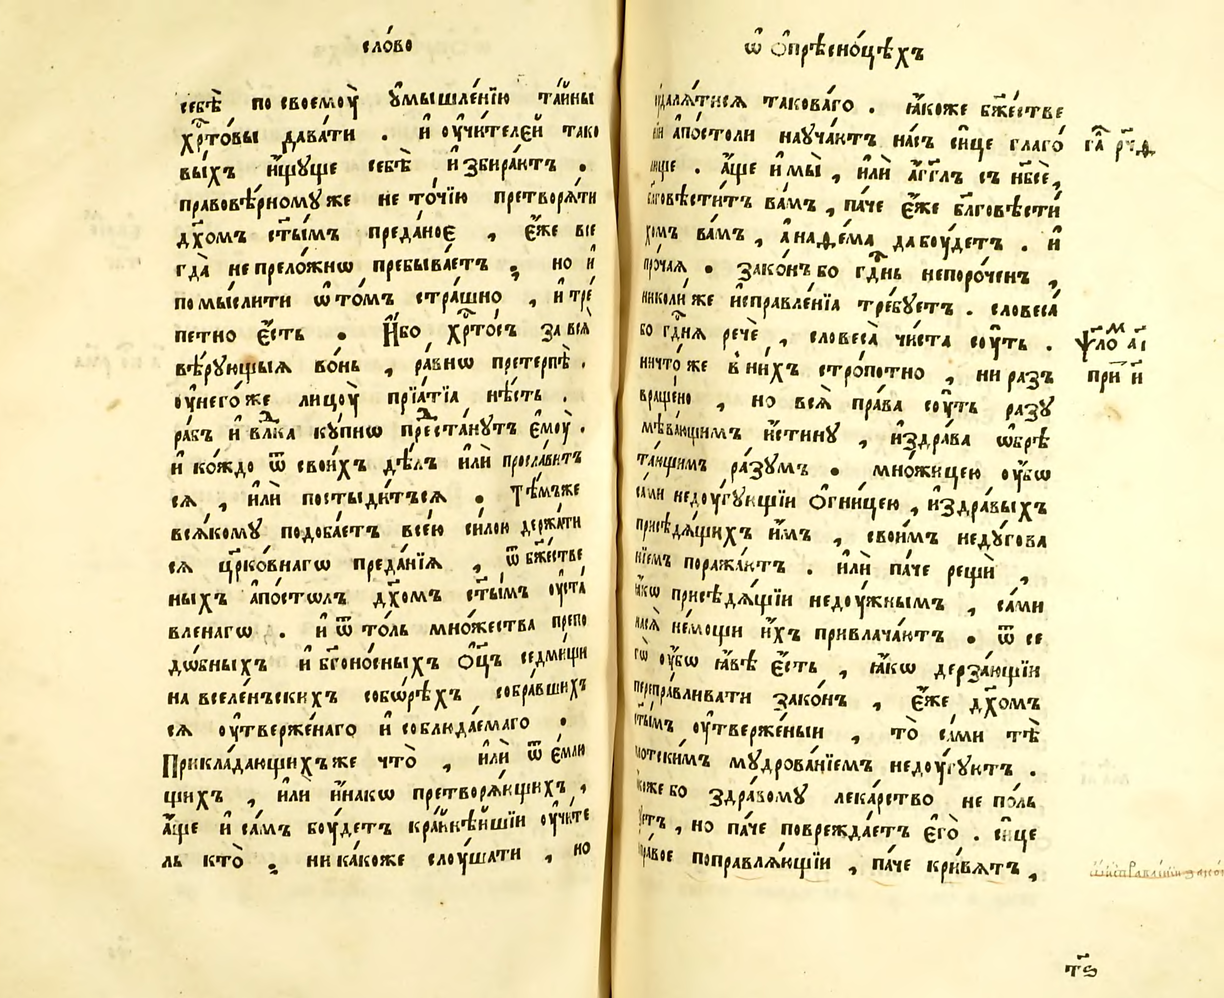 сло́во
себѣ̀ по своемоу̀ ᲂумышле́нїю та́йны
хрⷭ҇то́вы дава́ти . и҆ ᲂучи́телей тако
вы́хъ и҆́щуще себѣ̀ и҆збира́ютъ .
правовѣ́рному же не то́чїю претворѧ́ти
дх҃омъ ст҃ы́мъ преда́ное , є҆́же все
гда̀ непрело́жнѡ пребыва́етъ , но и҆
помы́слити ѡ҆ то́мъ стра́шно , и҆ тре́
петно є҆́сть . И҆́бо хрⷭ҇то́съ за всѧ̀
вѣ́рующыѧ во́нь , ра́внѡ претерпѣ̀ .
ᲂу҆ него́ же лицоу̀ прїѧ́тїѧ нѣ́сть .
ра́бъ и҆ влⷣка ку́пнѡ преⷣста́нутъ є҆моу̀ .
и҆ ко́ждо ѿ свои́хъ дѣ́лъ и҆лѝ просла́витъ
сѧ , и҆лѝ постыди́тъсѧ . Тѣ́мъже
всѧ́кому подоба́етъ все́ю си́лою держа́ти
сѧ цр҃ко́внагѡ преда́нїѧ , ѿ бж҃е́стве
ныхъ а҆по́стѡлъ дх҃омъ ст҃ы́мъ ᲂуста́
вленагѡ . и҆ ѿ то́ль мно́жества препо
до́бныхъ и҆ бг҃оно́сныхъ ѻ҆ц҃ъ седми́щи
на вселе́нъскихъ собо́рѣхъ собра́вшихъ
сѧ ᲂу҆твержена́го и҆ соблюда́емаго .
Прикла́дающихъ же что̀ , и҆лѝ ѿе́млю
щихъ , и҆лѝ и҆́накѡ претворѧ́ющихъ ,
а҆́ще и҆ са́мъ бо́удетъ кра́йнѣйшїи ᲂучи́те
ль кто̀ , ника́коже слоу́шати , но
ѡ҆ ѻ҆прѣсно́цѣхъ
ᲂудалѧ́тисѧ такова́го . ꙗ҆́коже бж҃е́стве
нїи а҆по́столи науча́ютъ на́съ си́це глаго́
люще . а҆́ще и҆ мы̀ , и҆лѝ а҆́гг҃лъ съ нб҃сѐ ,
благовѣсти́тъ ва́мъ , па́че є҆́же бл҃говѣсти́
хомъ ва́мъ , а҆на́ѳема да боу́детъ . и҆
про́чаѧ . зако́нъ бо гдⷭ҇нь непоро́ченъ ,
николи́же и҆справле́нїѧ тре́буетъ . словеса̀
бо гдⷭ҇нѧ речѐ , словеса̀ чи́ста соу́ть .
ничто́же в ни́хъ стро́потно , ни раз
вращено , но всѧ̀ пра́ва соу́ть разу
мѣва́ющимъ и҆́стину , и҆ здра́ва ѡ҆брѣ
та́ющимъ ра́зумъ . мно́жицею ᲂу҆́бѡ
са́ми недоу́гующїи ѻ҆гни́цею , и҆ здра́выхъ
присѣдѧ́щихъ и҆́мъ , свои́мъ неду́гова
нїемъ поража́ютъ . и҆лѝ па́че рещѝ ,
ꙗ҆́кѡ присѣдѧ́щїи недоу́жнымъ , са́ми
насѧ̀ не́мощи и҆́хъ привлача́ютъ . ѿ се
гѡ̀ ᲂу҆́бѡ ꙗ҆́вѣ є҆́сть , ꙗ҆́кѡ дерза́ющїи
переправливати зако́нъ , є҆́же дх҃омъ
ст҃ы́мъ ᲂу҆тверже́ныи , то̀ са́ми тѣ
лотски́мъ мудрова́нїемъ недоу́гуютъ .
ꙗ҆́коже бо здра́вому лека́рство не по́ль
зуетъ , но па́че поврежда́етъ є҆го̀ . си́це
пра́вое поправлѧ́ющїи , па́че кривѧ́тъ ,
га҃
ѱало́мъ а҃і
при́т и҃
т҃ѕ